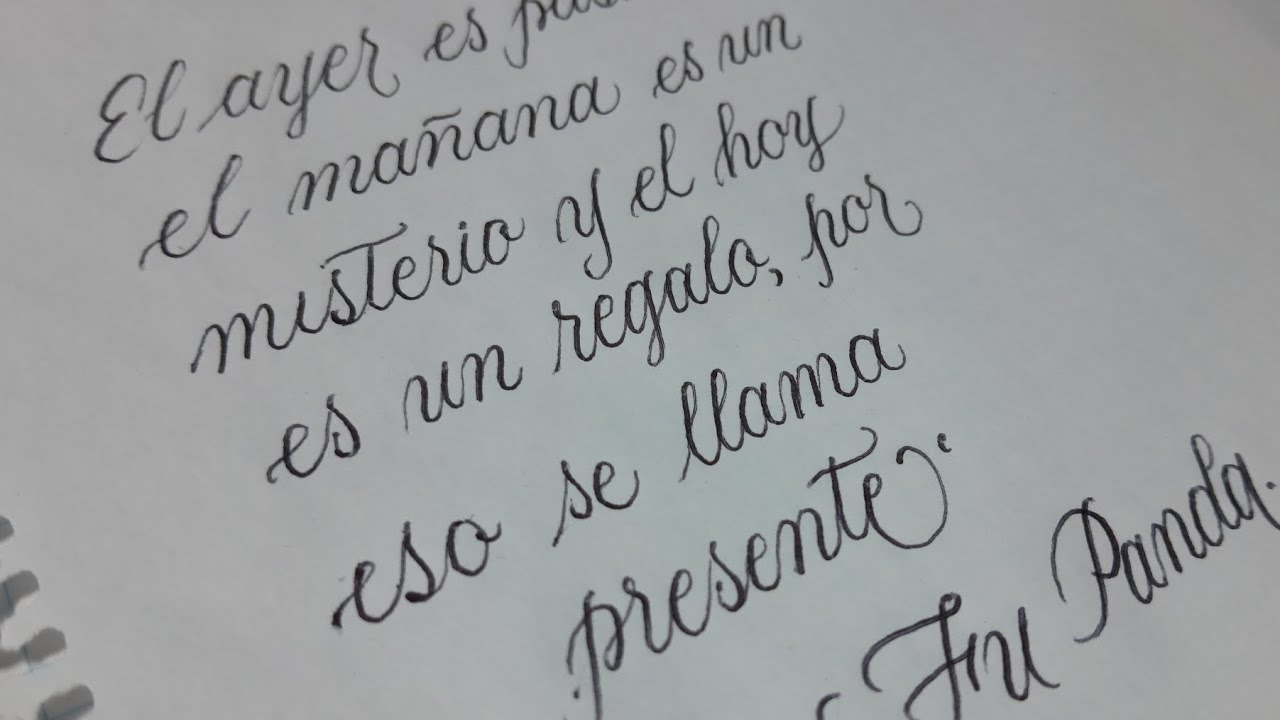 El ayer es
el mañana es un
misterio y el hoy
es un regalo, por
eso se llama
presente.
Fu Panda.